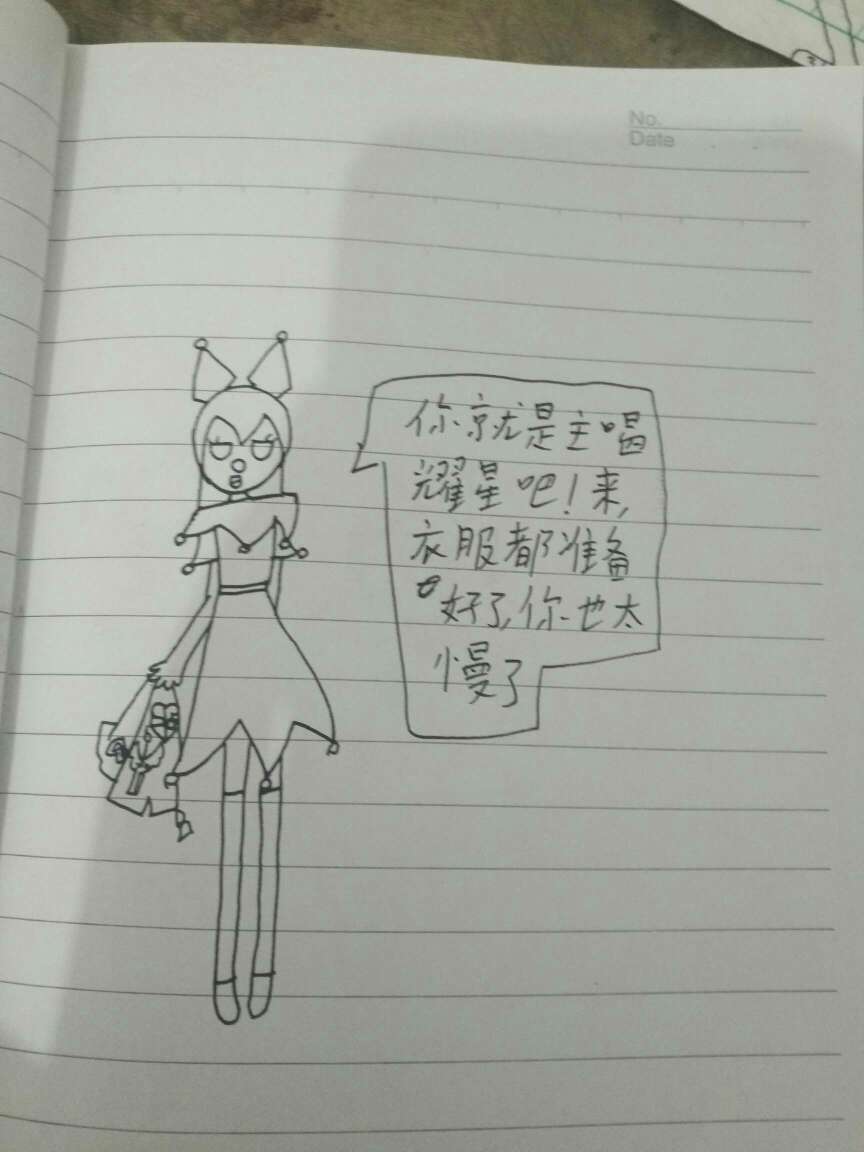 No.
Date
你就是主唱
耀星吧！来,
衣服都准备
好了,你也太
慢了